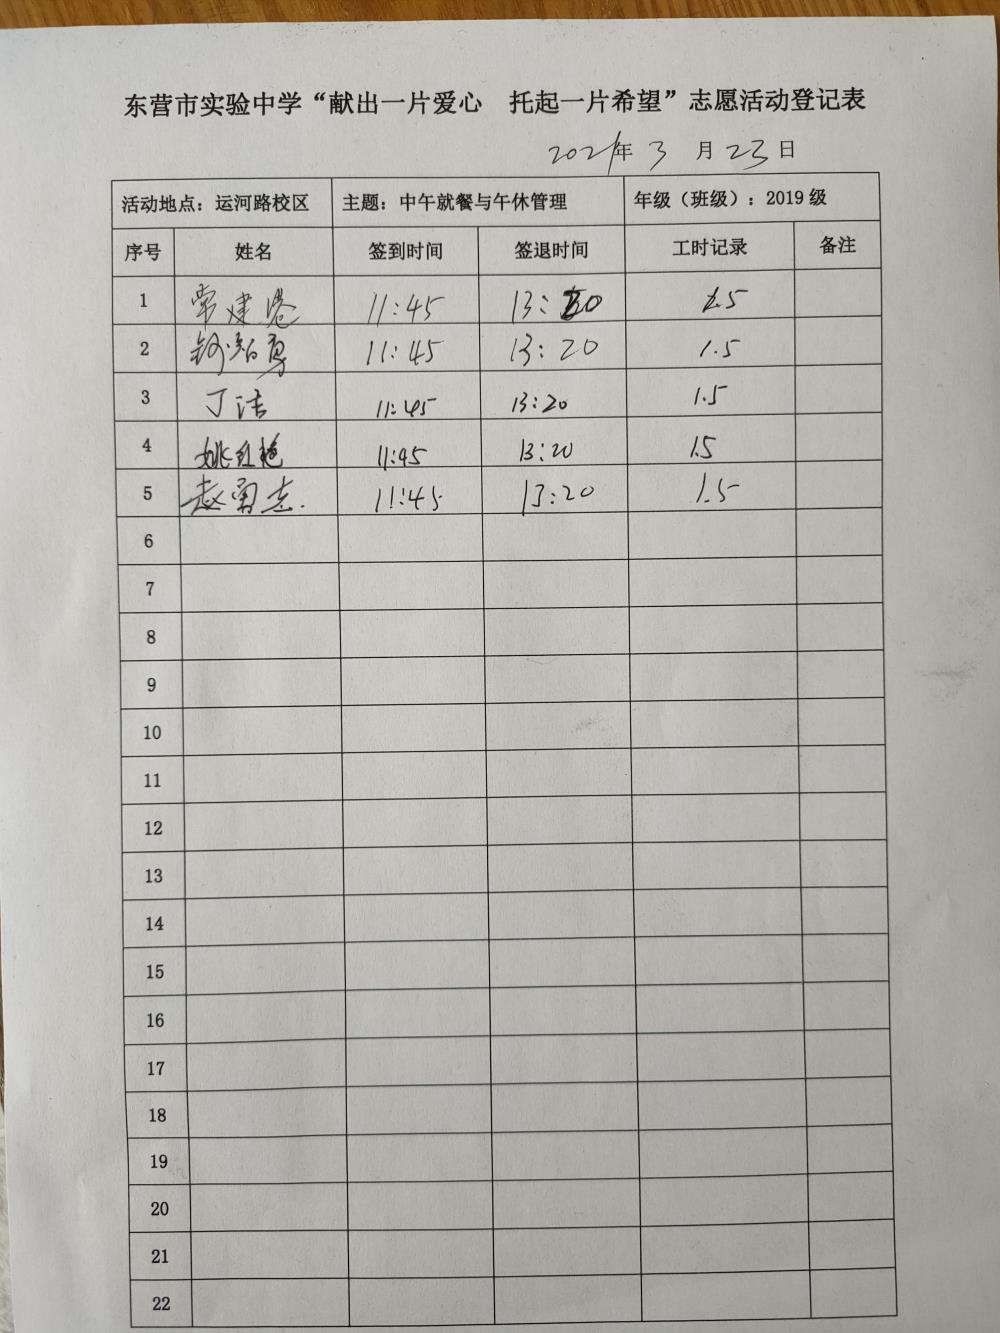 东营市实验中学“献出一片爱心 托起一片希望”志愿活动登记表
2021年3月23日
活动地点：运河路校区 主题：中午就餐与午休管理 年级（班级）：2019级
序号 姓名 签到时间 签退时间 工时记录 备注
1 常建 11:45 13:20 1.5
2 11:45 13:20 1.5
3 丁洁 11:45 13:20 1.5
4 姚红艳 11:45 13:20 1.5
5 赵勇志 11:45 13:20 1.5
6
7
8
9
10
11
12
13
14
15
16
17
18
19
20
21
22